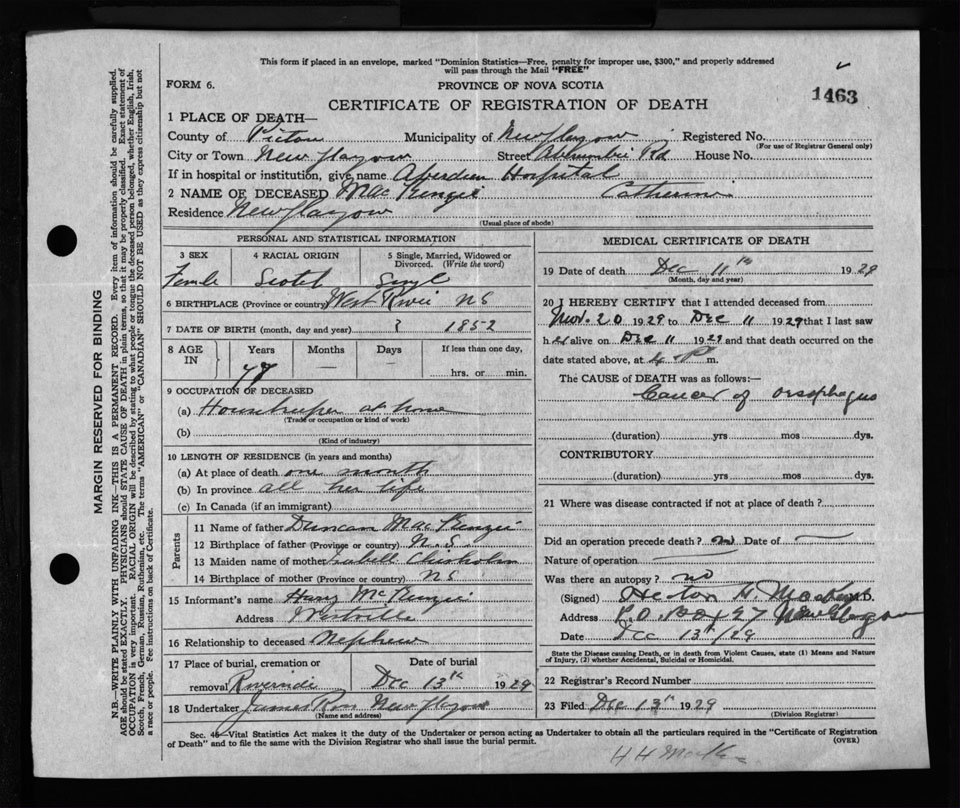 This form if placed in an envelope, marked "Dominion Statistics—Free, penalty for improper use, $300," and properly addressed
will pass through the Mail "FREE"
FORM 6.
PROVINCE OF NOVA SCOTIA
1463
CERTIFICATE OF REGISTRATION OF DEATH
1 PLACE OF DEATH—
County of Pictou Municipality of New Glasgow Registered No.
(For use of Registrar General only)
City or Town New Glasgow Street Abercrombie Rd House No.
If in hospital or institution, give name Aberdeen Hospital
2 NAME OF DECEASED MacKenzie Catherine
Residence New Glasgow
(Usual place of abode)
PERSONAL AND STATISTICAL INFORMATION
3 SEX 4 RACIAL ORIGIN 5 Single, Married, Widowed or Divorced. (Write the word)
Female Scotch Single
6 BIRTHPLACE (Province or country) West River NS
7 DATE OF BIRTH (month, day and year) ? 1852
8 AGE IN Years Months Days If less than one day,
77 — hrs. or min.
9 OCCUPATION OF DECEASED
(a) Housekeeper at home
(Trade or occupation or kind of work)
(b)
(Kind of industry)
10 LENGTH OF RESIDENCE (in years and months)
(a) At place of death one month
(b) In province all her life
(c) In Canada (if an immigrant)
Parents
11 Name of father Duncan MacKenzie
12 Birthplace of father (Province or country) N.S.
13 Maiden name of mother Isabell Chisholm
14 Birthplace of mother (Province or country) NS
15 Informant's name Harry McKenzie
Address Westville
16 Relationship to deceased Nephew
17 Place of burial, cremation or removal Riverside Date of burial Dec 13th 1929
18 Undertaker James Ross New Glasgow
(Name and address)
MEDICAL CERTIFICATE OF DEATH
19 Date of death Dec 11th 1929
(Month, day and year)
20 I HEREBY CERTIFY that I attended deceased from
Nov. 20 1929 to Dec 11 1929 that I last saw
her alive on Dec 11 1929 and that death occurred on the
date stated above, at 4 P m.
The CAUSE of DEATH was as follows:—
Cancer of oesophagus
(duration) yrs mos dys.
CONTRIBUTORY
(duration) yrs mos dys.
21 Where was disease contracted if not at place of death?
Did an operation precede death? no Date of —
Nature of operation —
Was there an autopsy? no
(Signed) Hector H. M.D.
Address P.O. Box 97 New Glasgow
Date Dec 13th/29
State the Disease causing Death, or in death from Violent Causes, state (1) Means and Nature of Injury, (2) whether Accidental, Suicidal or Homicidal.
22 Registrar's Record Number
23 Filed Dec 13th 1929
(Division Registrar)
Sec. 46—Vital Statistics Act makes it the duty of the Undertaker or person acting as Undertaker to obtain all the particulars required in the "Certificate of Registration
of Death" and to file the same with the Division Registrar who shall issue the burial permit.
(OVER)
H H
MARGIN RESERVED FOR BINDING
N.B.—WRITE PLAINLY WITH UNFADING INK—THIS IS A PERMANENT RECORD. Every item of information should be carefully supplied.
AGE should be stated EXACTLY. PHYSICIANS should STATE CAUSE OF DEATH in plain terms, so that it may be properly classified. Exact statement of
OCCUPATION is very important. RACIAL ORIGIN will be described by stating to what people or tongue the deceased person belonged, whether English, Irish,
Scotch, French, German, Russian, Ruthenian, etc. The terms "AMERICAN" or "CANADIAN" SHOULD NOT BE USED as they express citizenship but not
a race or people. See instructions on back of Certificate.